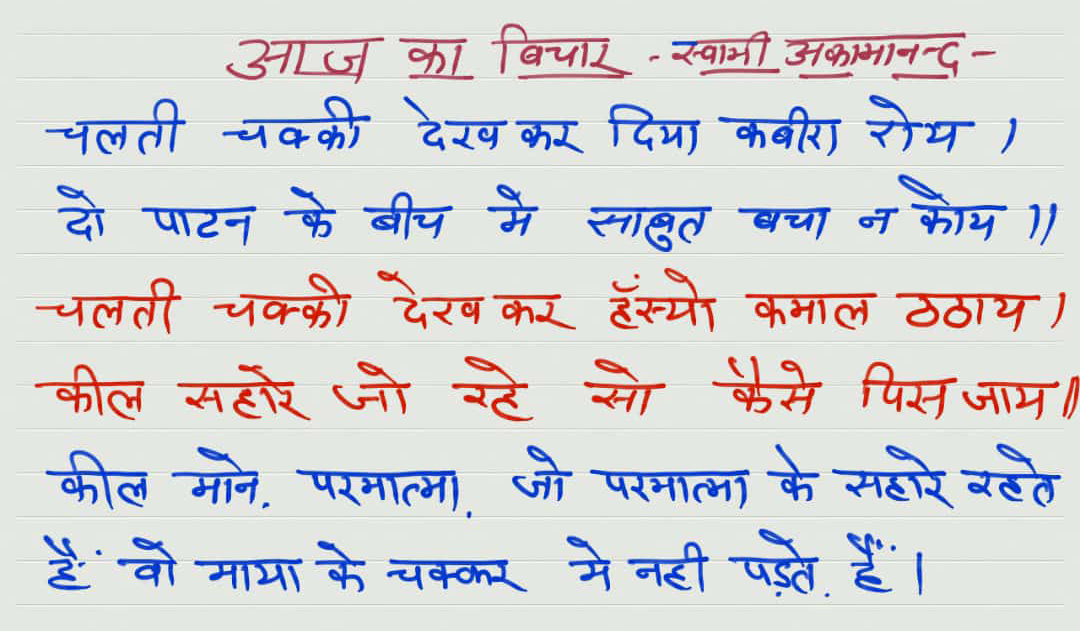 आज का विचार - स्वामी अकामानन्द -
चलती चक्की देख कर दिया कबीरा रोय ।
दो पाटन के बीच मे साबुत बचा न कोय ॥
चलती चक्की देख कर हँस्यो कमाल ठठाय ।
कील सहारे जो रहे सो कैसे पिस जाय ॥
कील माने. परमात्मा. जो परमात्मा के सहारे रहते
हैं वो माया के चक्कर मे नही पड़ते. हैं ।